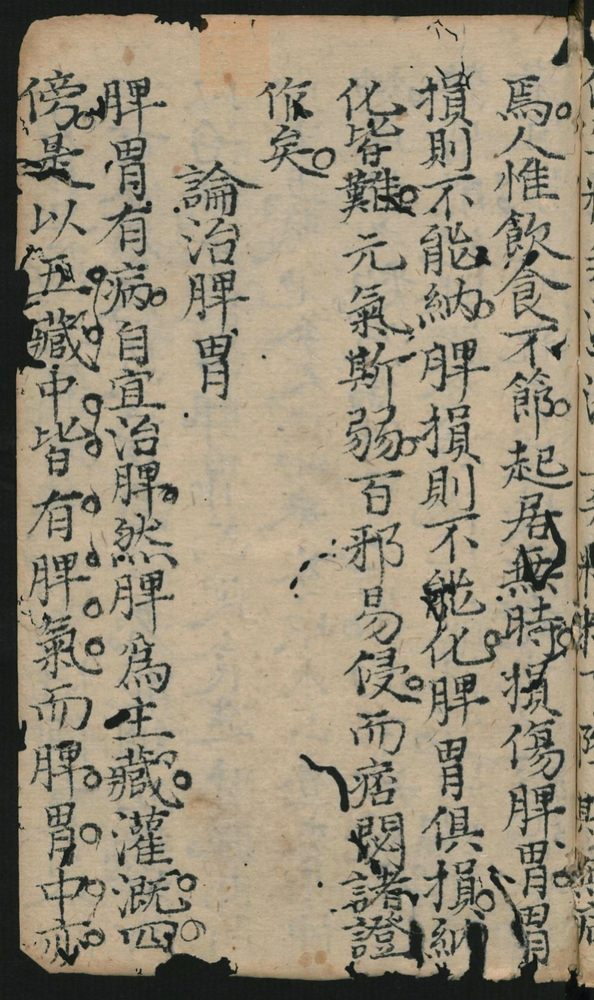 焉。人惟飲食不節。起居無時。損傷脾胃。胃
損則不能納。脾損則不能化。脾胃俱損。納
化皆難。元氣斯弱。百邪易侵。而痞悶諸證
作矣。
論治脾胃
脾胃有病。自宜治脾。然脾爲土藏。灌溉四
傍。是以五藏中皆有脾氣而脾胃中亦